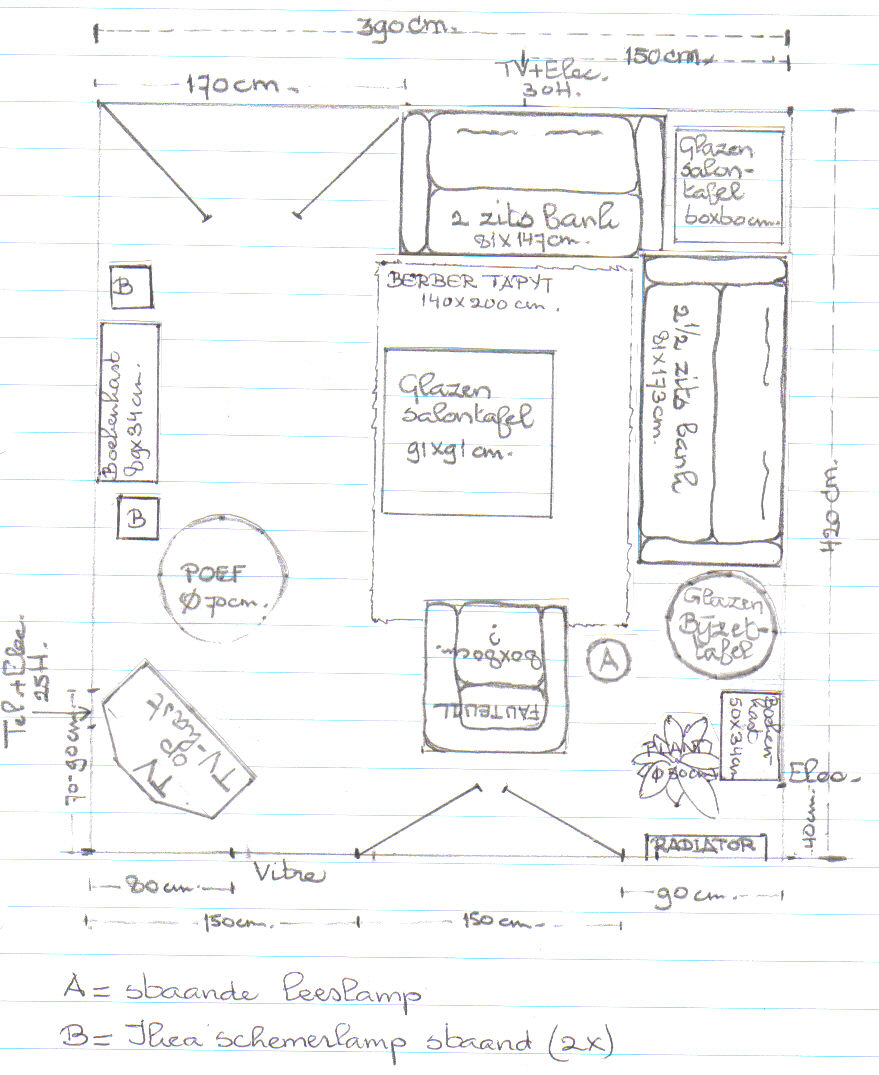 390cm.
150cm.
TV+Elec.
30H.
170cm.
Glazen
salon-
tafel
60x60cm.
2 zits bank
81x147cm.
BERBER TAPYT
140x200cm.
B
Boekenkast
89x34cm.
Glazen
salontafel
91x91cm.
2 1/2 zits bank
81x173cm.
420cm
B
POEF
Ø 70cm.
Glazen
Byzet-
tafel
?
80x80cm.
FAUTEUIL
A
Tel.+Elec.
25H.
TV
op
TV-kast
70-90cm
Boeken-
kast
50x34cm
PLANT
Ø 50cm
Elec.
40cm.
RADIATOR
80cm.
Vitre
90cm.
150cm.
150cm.
A = staande leeslamp
B = Ikea schemerlamp staand (2x)